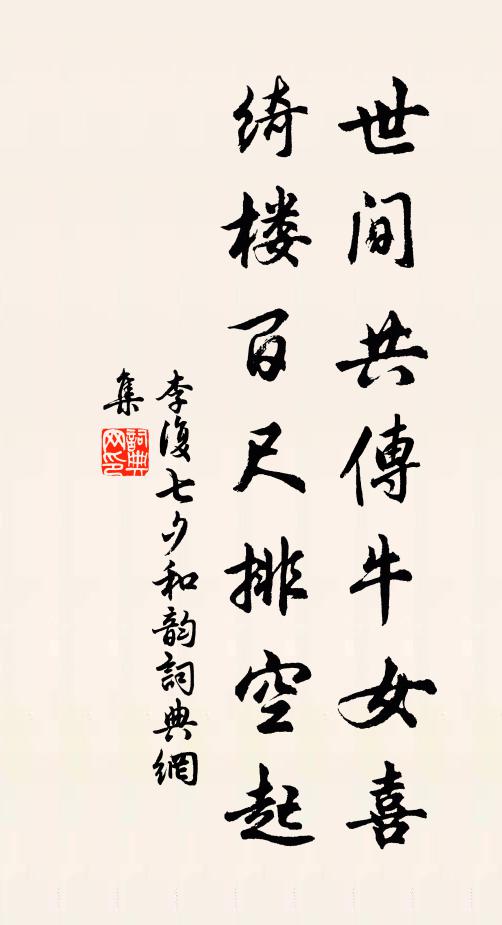 世間共傳牛女喜
绮楼百尺排空起
李復七夕和韵詞典網
集
詞典网印